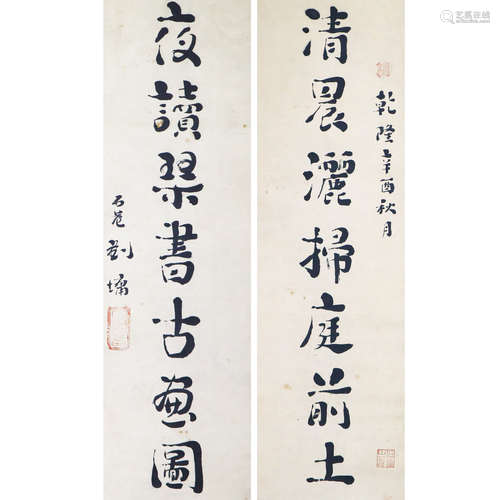 乾隆辛酉秋月
清晨灑掃庭前土
夜讀琴書古畫圖
石菴劉墉
艺狐在线